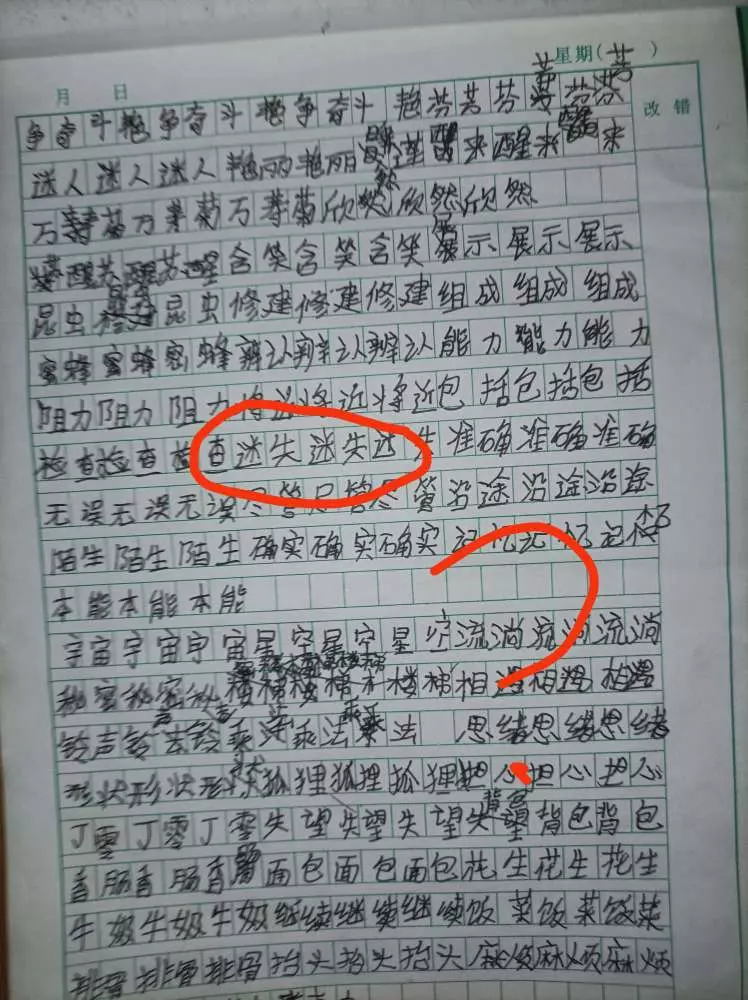 月 日 星期( )
改错
争奇斗艳争奇斗艳争奇斗艳芬芳芬芳芬芳
迷人迷人迷人艳丽艳丽 醒来醒来 来
万寿菊万寿菊万寿菊欣然欣然欣然
苏醒苏醒苏醒含笑含笑含笑展示展示展示
昆虫 昆虫修建修建修建组成组成组成
蜜蜂蜜蜂蜜蜂辨认辨认辨认能力能力能力
阻力阻力阻力将近将近将近包括包括包括
检查检查检查迷失迷失迷失准确准确准确
无误无误无误尽管尽管尽管沿途沿途沿途
陌生陌生陌生确实确实确实记忆记忆记忆
本能本能本能
宇宙宇宙宇宙星空星空星空流淌流淌流淌
秘密秘密秘 楼梯楼梯楼梯相遇相遇相遇
铃声铃声铃 乘法乘法乘法 思绪思绪思绪
形状形状形状狐狸狐狸狐狸担心担心担心
丁零丁零丁零失望失望失望失望背包背包
背包
香肠香肠香肠面包面包面包花生花生花生
牛奶牛奶牛奶继续继续继续饭菜饭菜饭菜
排骨排骨排骨抬头抬头抬头麻烦麻烦麻烦